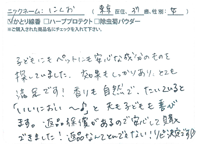 ニックネーム: にんじん (東京 在住, 37 歳, 性別: 女)
☑かとり線香 □ハーブプロテクト □除虫菊パウダー
※ご購入された商品名にチェックを入れて下さい。
子どもにもペットにも安心な成分のものを
探していました。効果もしっかりあり、とても
満足です！香りも自然で、たいていると
「いいにおい〜」と夫も子どもも喜び
ます。返品保証があるので安心して購入
できました！返品なんてとんでもない！リピ決定です♪